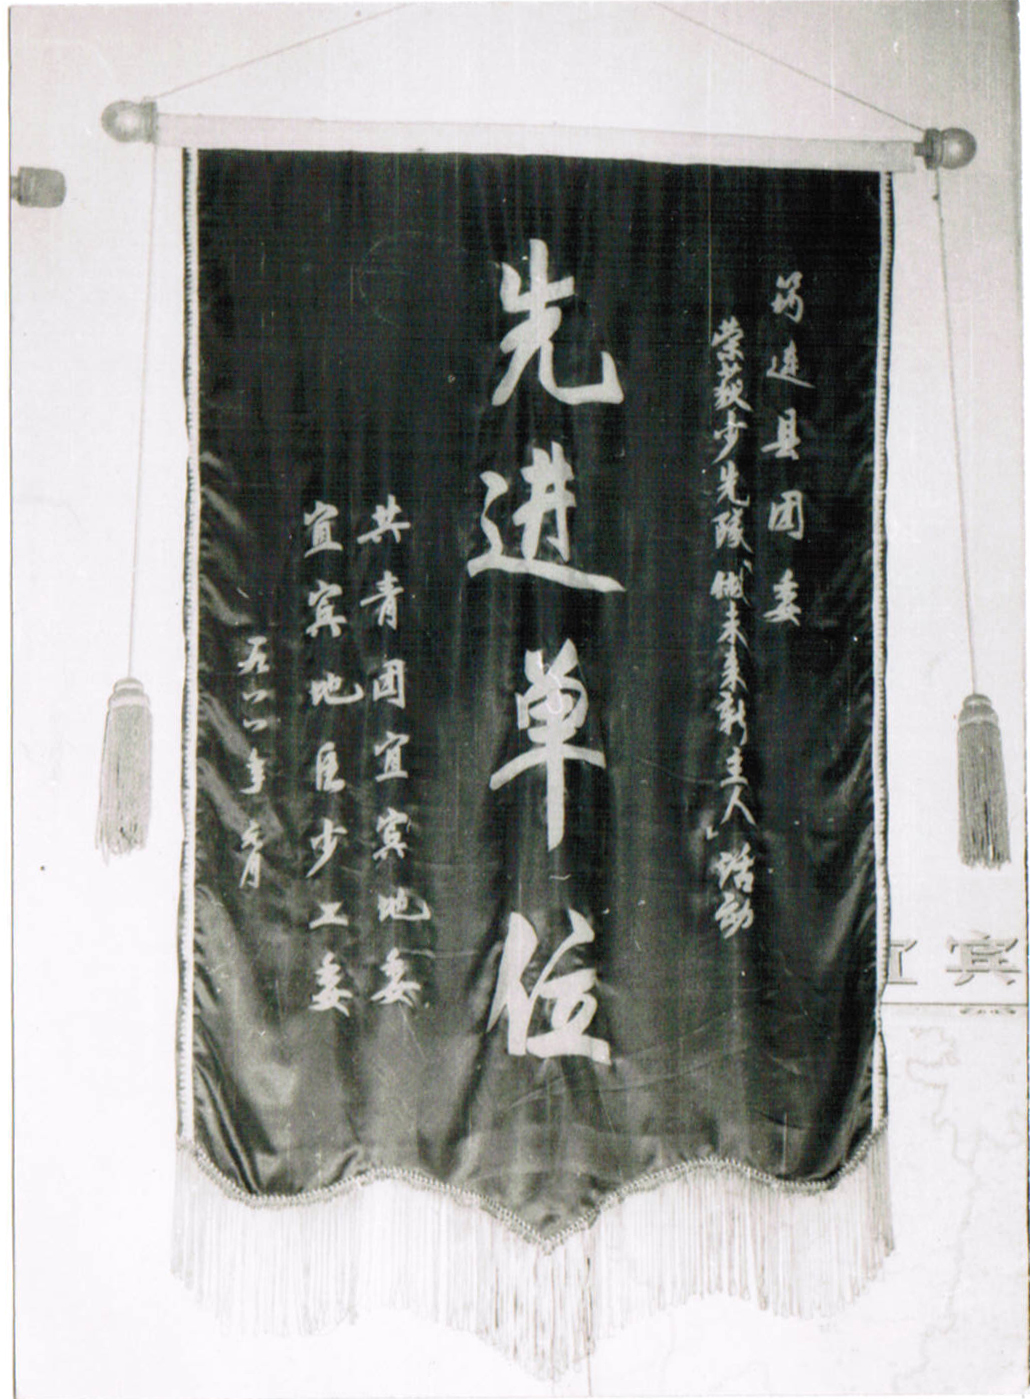 筠连县团委
荣获少先队“做未来新主人”活动
先进单位
共青团宜宾地委
宜宾地区少工委
年 月
宾